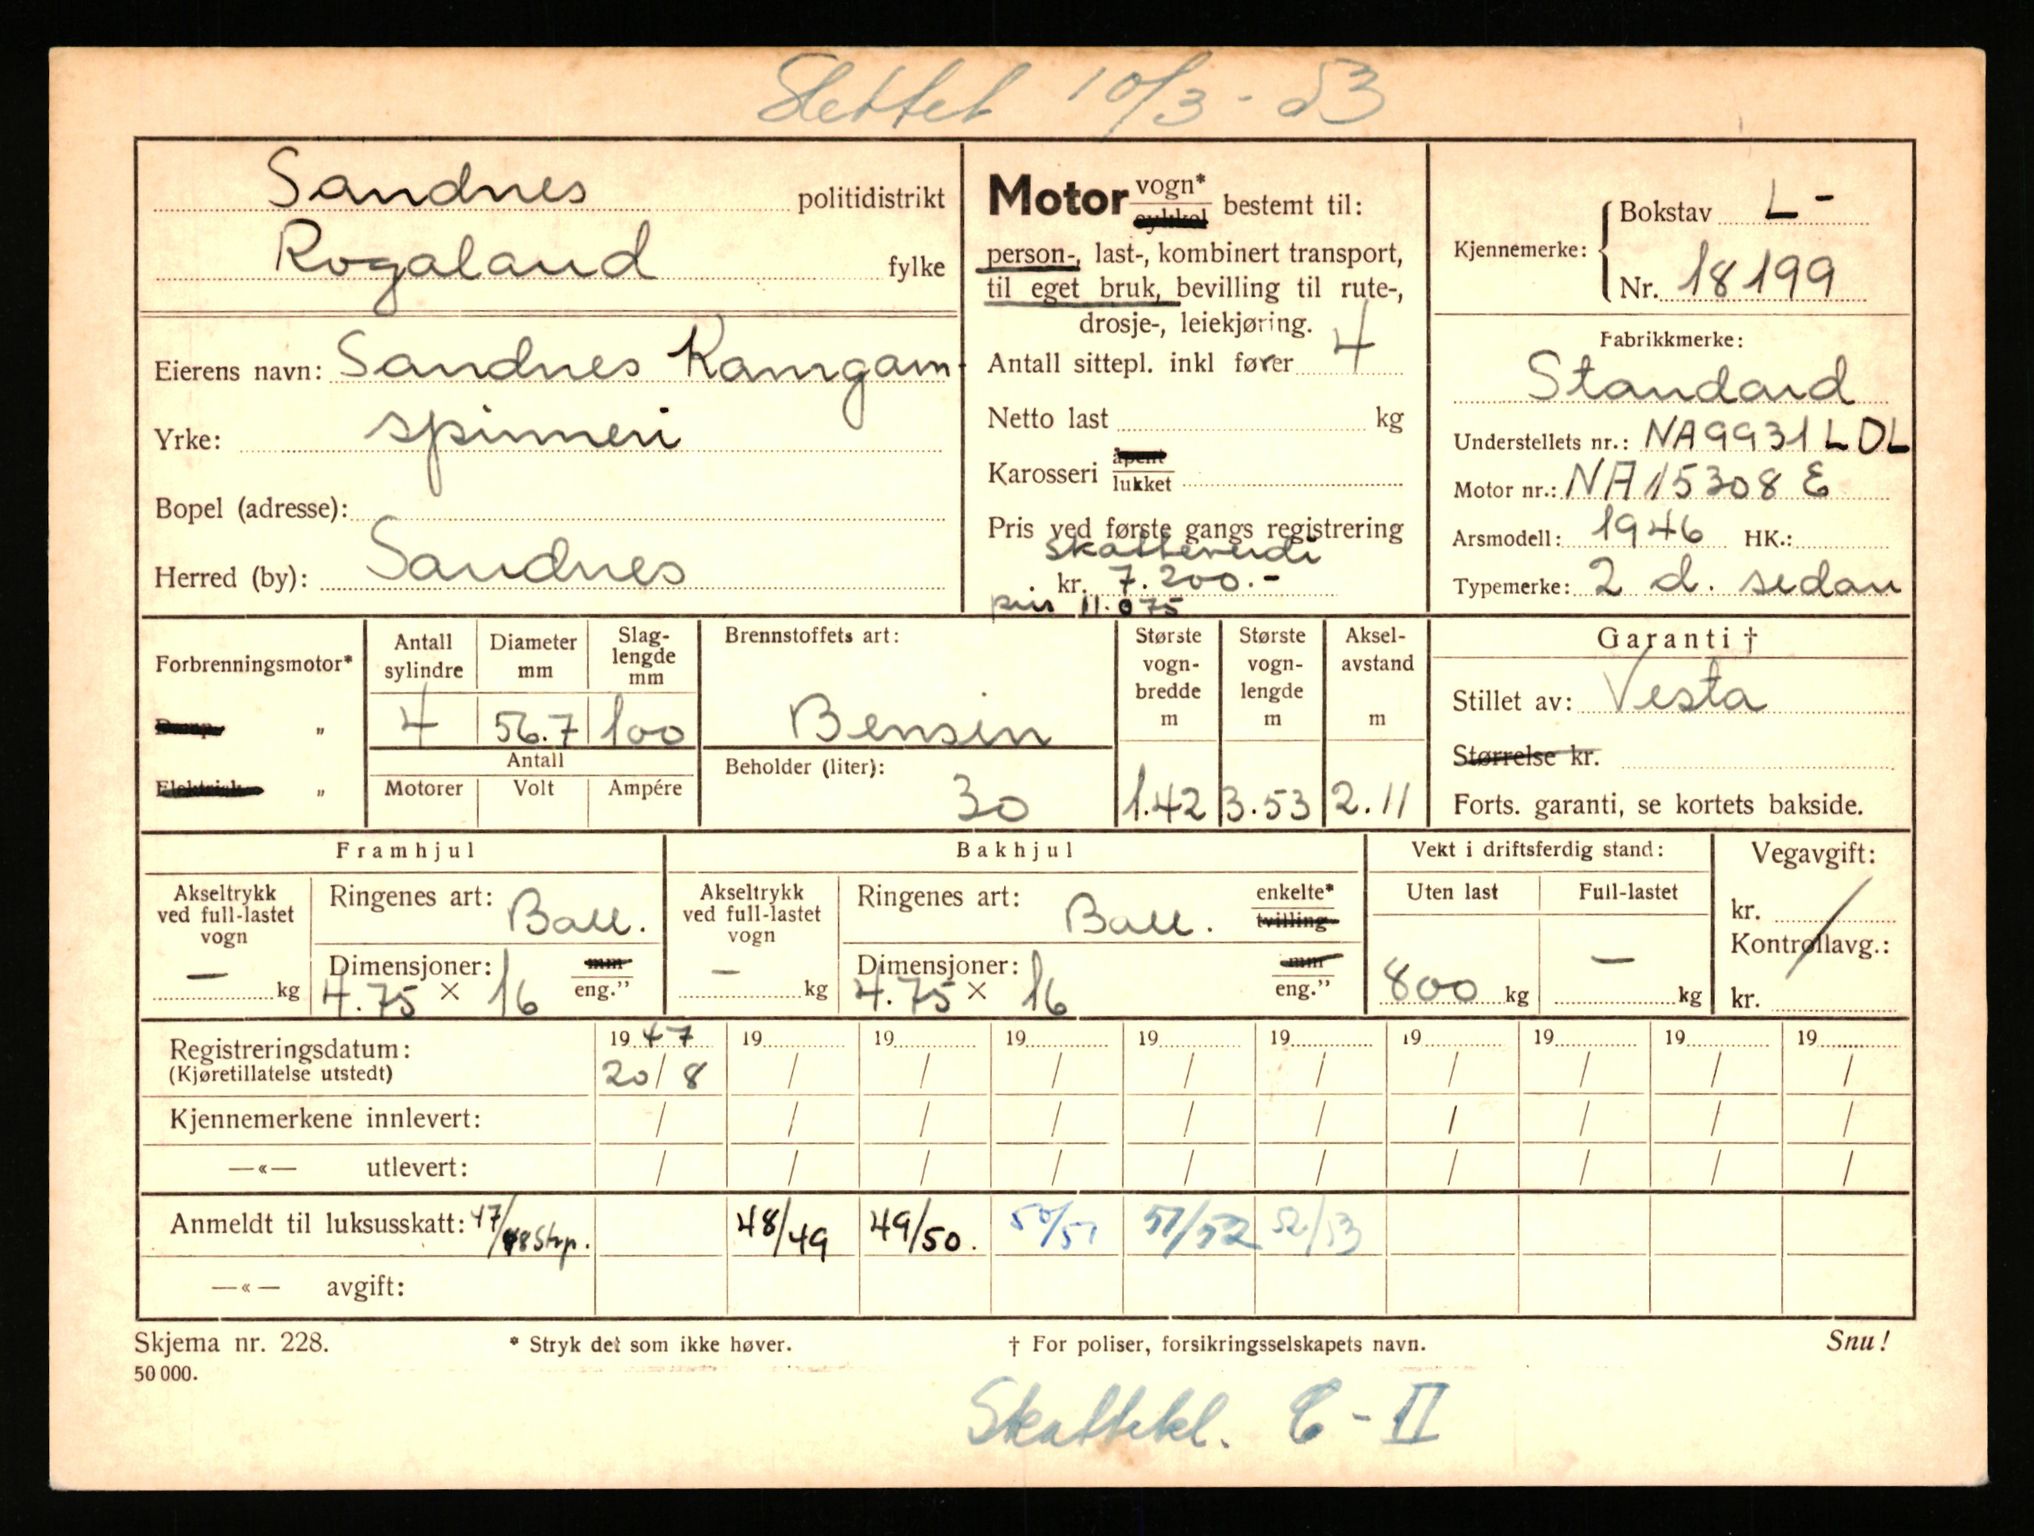 Slettet 10/3 - 53
Sandnes politidistrikt
Rogaland fylke
Eierens navn: Sandnes Kamgarn-
Yrke: spinneri
Bopel (adresse):
Herred (by): Sandnes
Motor vogn* sykkel bestemt til:
person-, last-, kombinert transport,
til eget bruk, bevilling til rute-,
drosje-, leiekjøring.
Antall sittepl. inkl fører 4
Netto last kg
Karosseri åpent lukket
Pris ved første gangs registrering
skatteverdi
kr. 7.200.-
pris 11.075
Kjennemerke: Bokstav L-
Nr. 18199
Fabrikkmerke:
Standard
Understellets nr.: NA9931LDL
Motor nr.: NA15308E
Arsmodell: 1946 HK.:
Typemerke: 2 d. sedan
Forbrenningsmotor*
Damp „
Elektrisk „
Antall sylindre
4
Diameter mm
56.7
Slag-lengde mm
100
Antall
Motorer Volt Ampére
Brennstoffets art:
Bensin
Beholder (liter):
30
Største vogn-bredde m
1.42
Største vogn-lengde m
3.53
Aksel-avstand m
2.11
Garanti †
Stillet av: Vesta
Størrelse kr.
Forts. garanti, se kortets bakside.
Framhjul
Akseltrykk ved full-lastet vogn
— kg
Ringenes art: Ball.
Dimensjoner: mm
4.75 × 16 eng.”
Bakhjul
Akseltrykk ved full-lastet vogn
— kg
Ringenes art: Ball. enkelte* tvilling
Dimensjoner: mm
4.75 × 16 eng.”
Vekt i driftsferdig stand:
Uten last Full-lastet
800 kg — kg
Vegavgift:
kr.
Kontrollavg.:
kr.
Registreringsdatum: 1947 19 19 19 19 19 19 19 19 19
(Kjøretillatelse utstedt) 20/8 / / / / / / / / /
Kjennemerkene innlevert: / / / / / / / / / /
—«— utlevert: / / / / / / / / / /
Anmeldt til luksusskatt: 47/48 Strp. 48/49 49/50. 50/51 51/52 52/53
—«— avgift:
Skjema nr. 228. * Stryk det som ikke høver. † For poliser, forsikringsselskapets navn. Snu!
50 000.
Skattekl. C - II